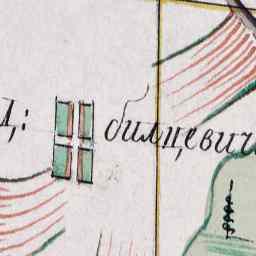 Д: билцевичи